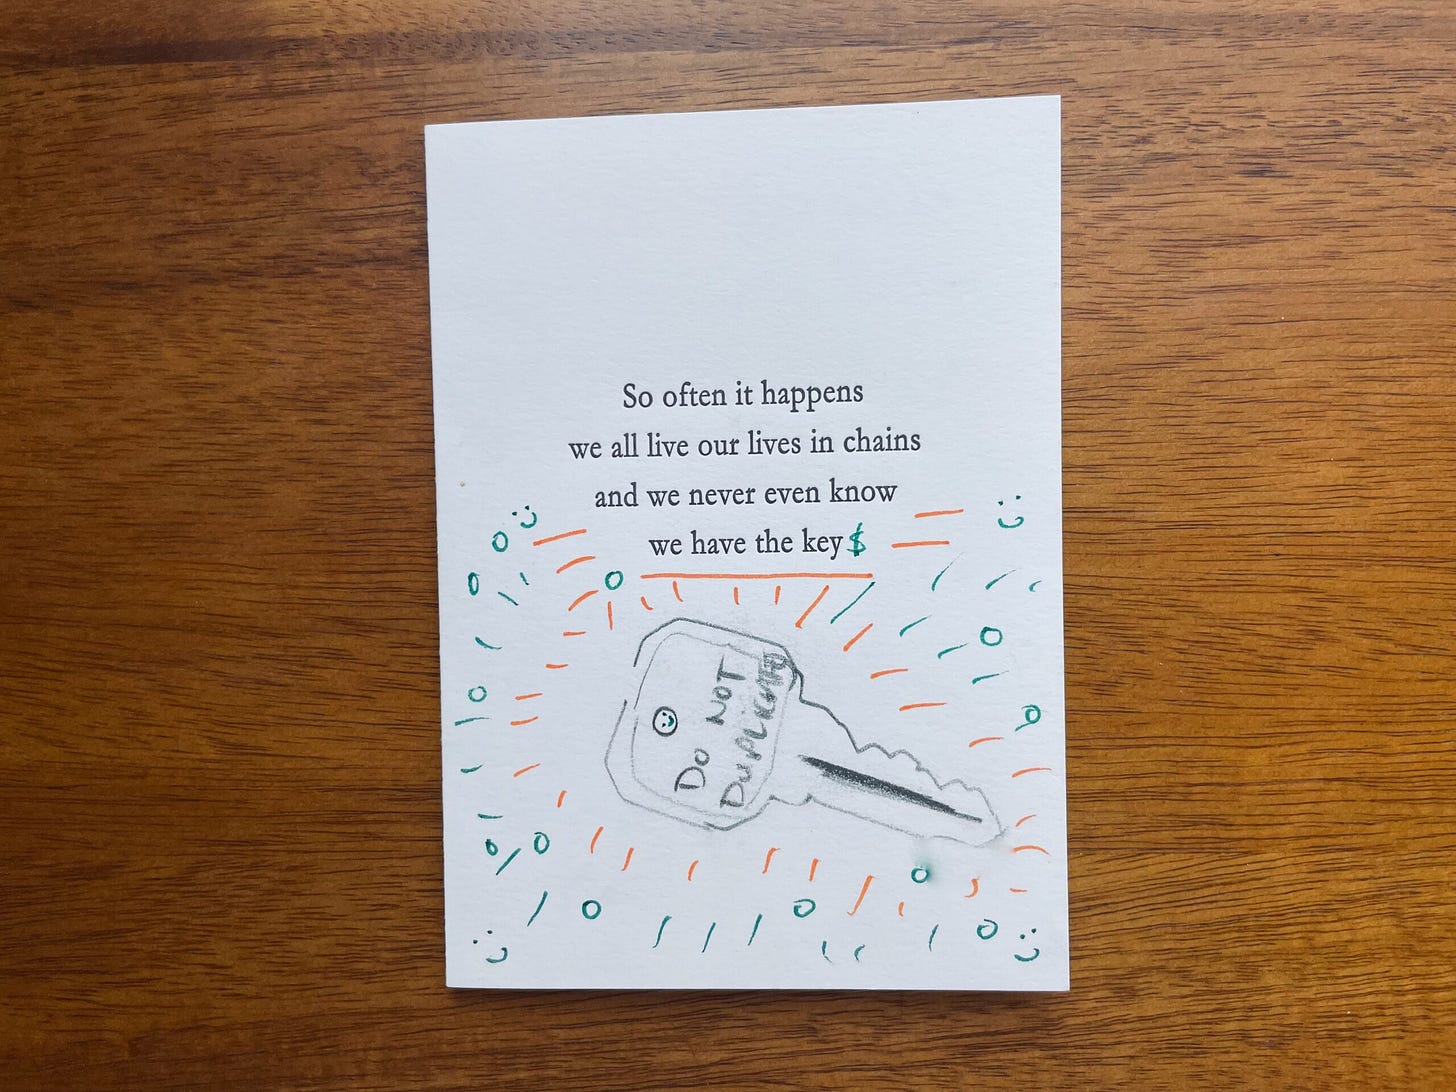 So often it happens
we all live our lives in chains
and we never even know
we have the key$
DO NOT
DUPLICATE